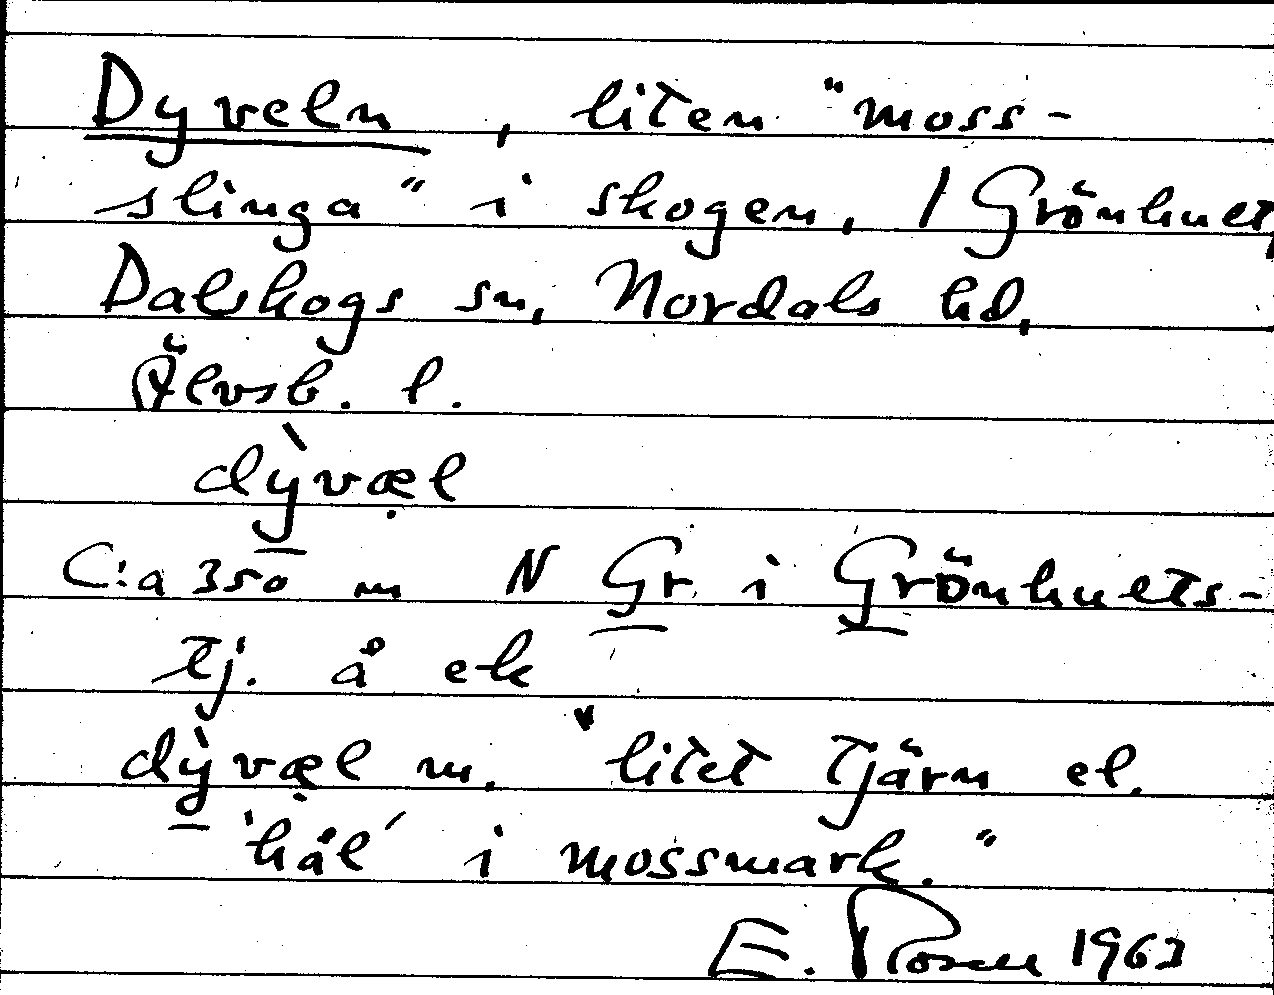 Dyveln, liten "moss-
slinga" i skogen, / Grönhult,
Dalskogs sn, Nordals hd,
Älvsb. l.
dỳvæ̣l
C:a 350 m N Gr. i Grönhults-
tj. å ek
dỳvæ̣l m. "litet tjärn el.
'hål' i mossmark."
E. Rosell 1963